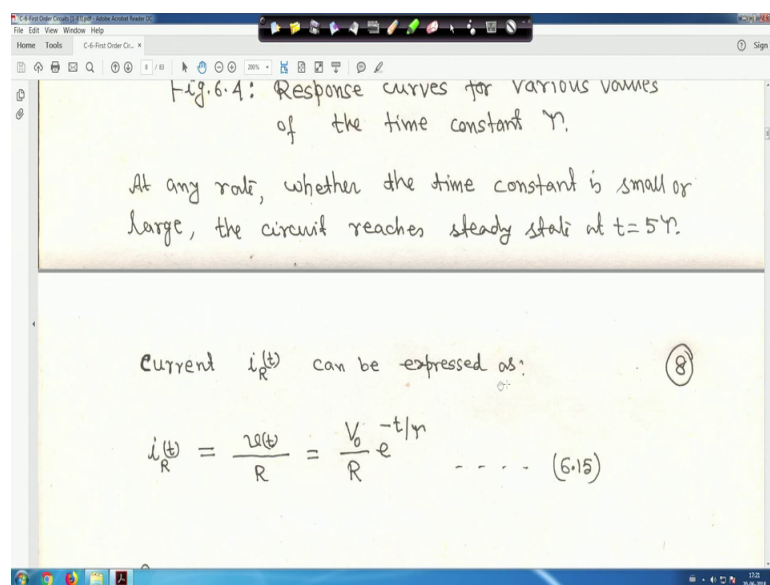 C-6-First Order Circuits [1-83].pdf - Adobe Acrobat Reader DC
File Edit View Window Help
Home Tools C-6-First Order Cir... × Sign
8 / 83 200%
Fig. 6.4: Response curves for various values
of the time constant τ.
At any rate, whether the time constant is small or
large, the circuit reaches steady state at t = 5τ.
Current i_R(t) can be expressed as: 8
i_R(t) = v(t)/R = V₀/R e^{-t/τ} - - - - (6.15)
17:21